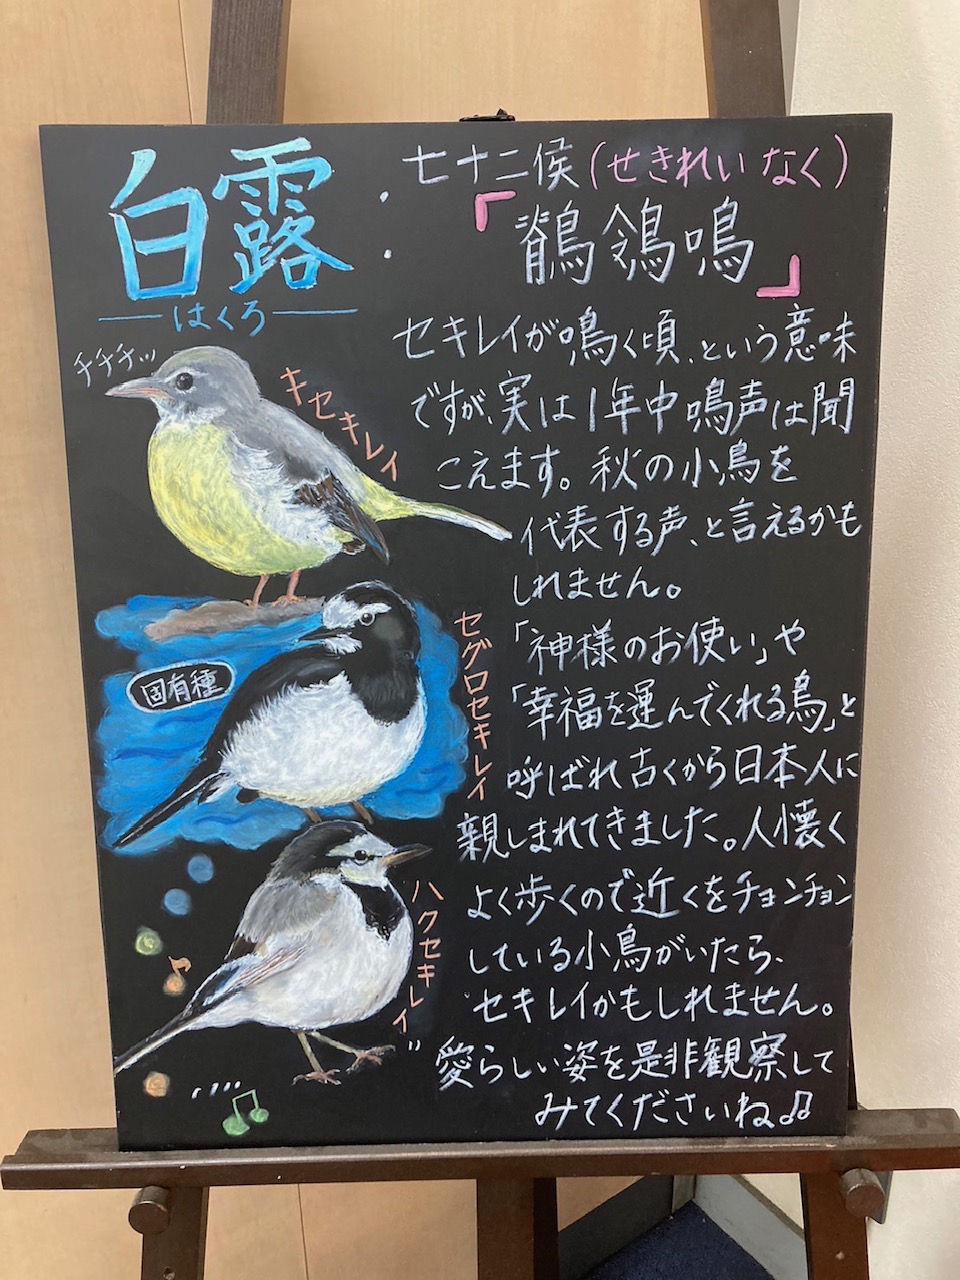 白露
はくろ
七十二侯(せきれいなく)
「鶺鴒鳴」
セキレイが鳴く頃、という意味
ですが、実は1年中鳴声は聞
こえます。秋の小鳥を
代表する声、と言えるかも
しれません。
「神様のお使い」や
「幸福を運んでくれる鳥」と
呼ばれ古くから日本人に
親しまれてきました。人懐く
よく歩くので近くをチョンチョン
している小鳥がいたら、
セキレイかもしれません。
愛らしい姿を是非観察して
みてくださいね♫
チチチッ
キセキレイ
セグロセキレイ
固有種
ハクセキレイ